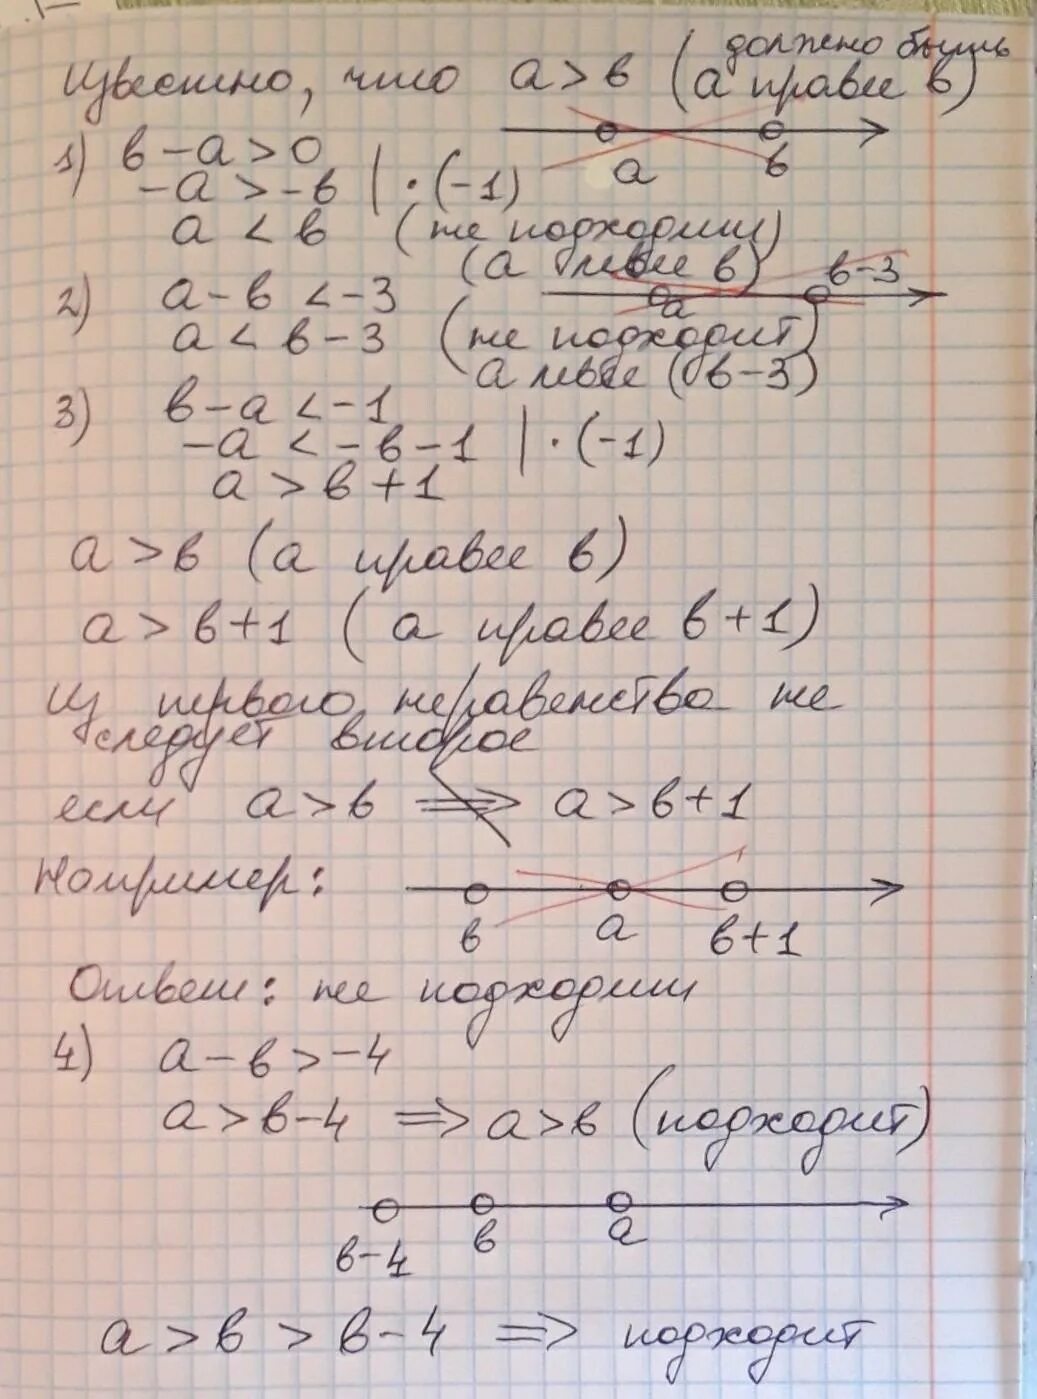 должно быть
Известно, что а > в (а правее в)
а в
1) в – а > 0
– а > – в | · (–1)
а < в (не подходит)
(а левее в)
в–3
2) а – в < –3
а
а < в – 3 (не подходит)
а левее (в–3)
3) в – а < –1
– а < – в – 1 | · (–1)
а > в + 1
а > в (а правее в)
а > в+1 (а правее в+1)
Из первого неравенства не
следует второе
если а > в ⇏ а > в+1
Например:
в а в+1
Ответ: не подходит
4) а – в > –4
а > в–4 ⇒ а > в (подходит)
в–4 в а
а > в > в–4 ⇒ подходит